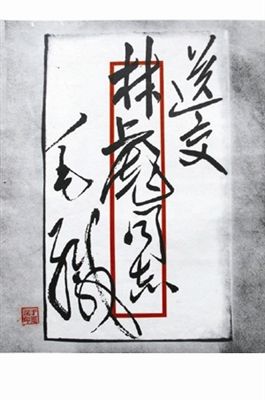 送交
林彪同志
毛緘